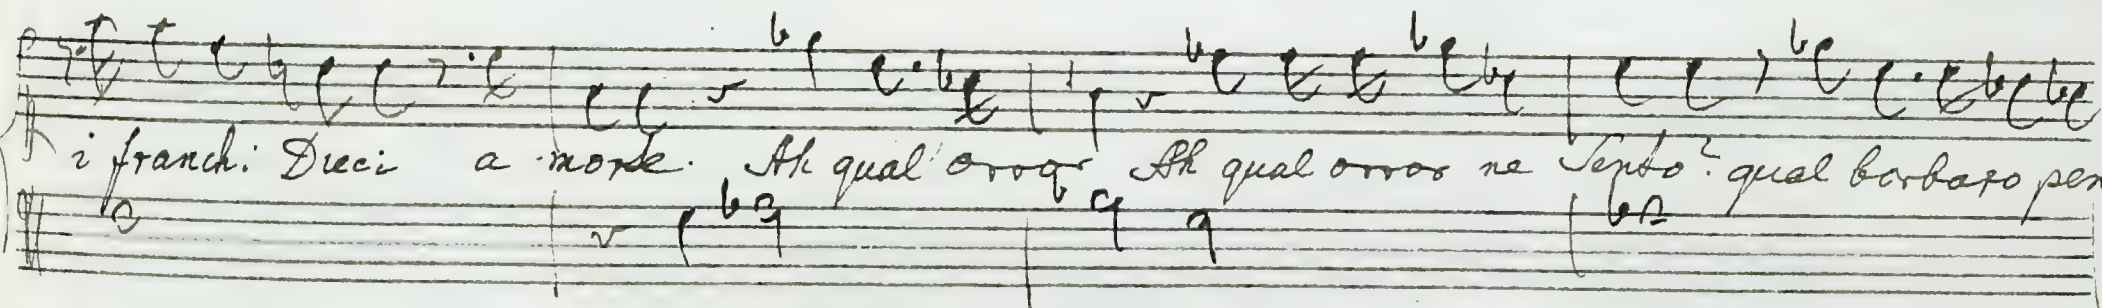 i franchi Dieci a morte. Ah qual orror Ah qual orror ne Sento? qual barbaro pen